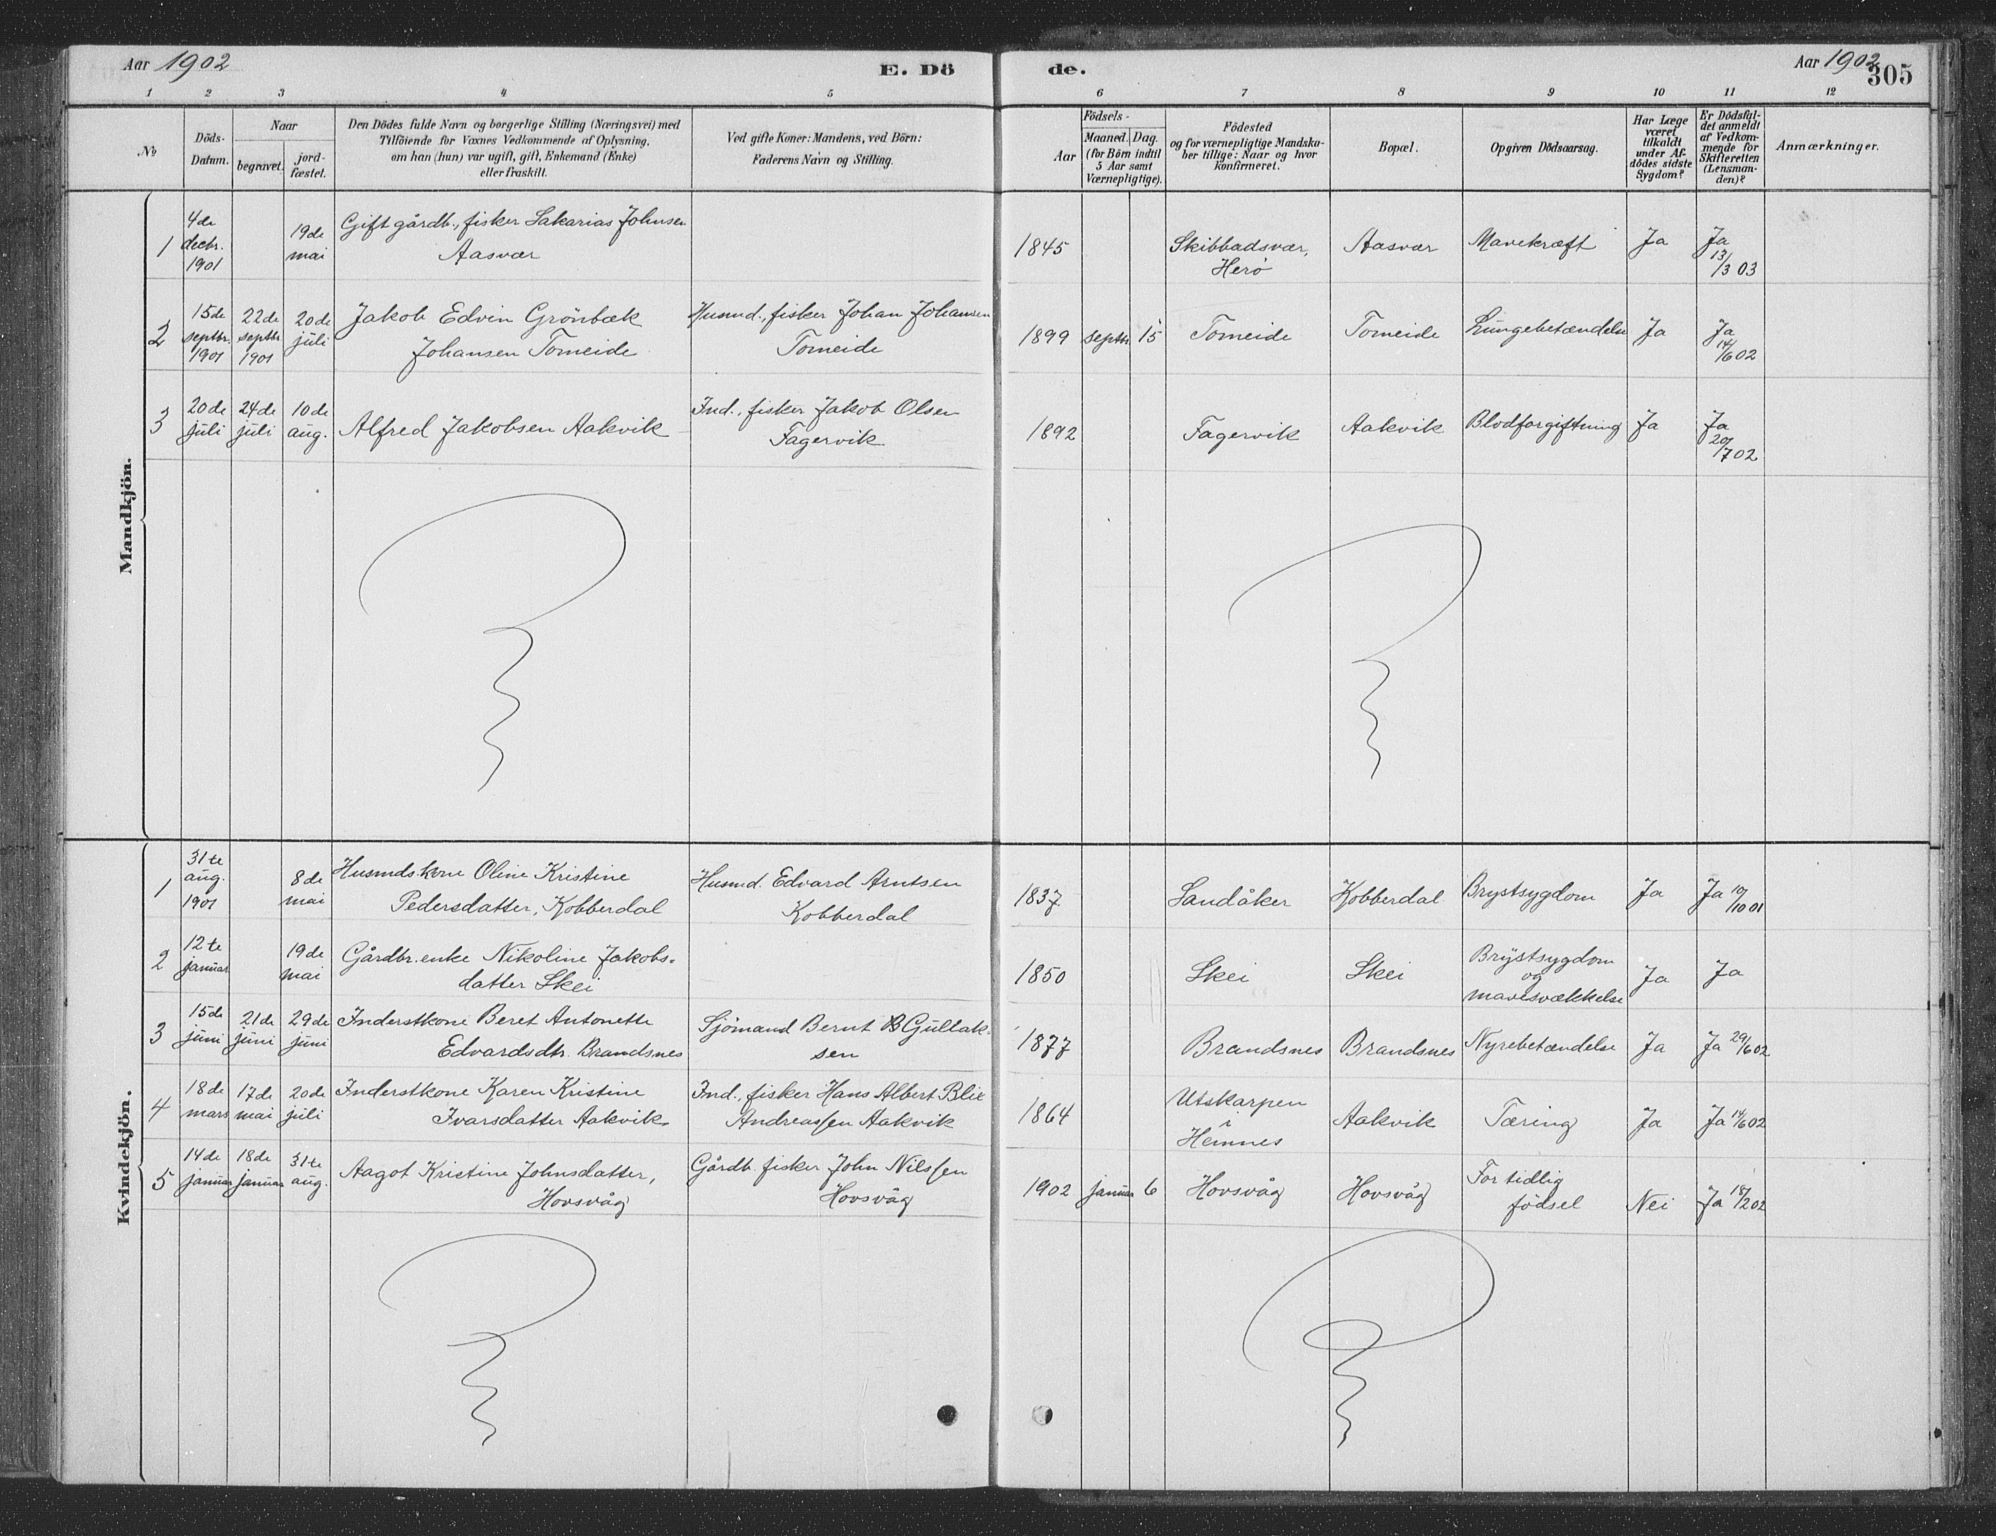 Aar 1902
E. Dö
de.
Aar 1902
305
1 2 3 4 5 6 7 8 9 10 11 12
No
Döds-
Datum.
Naar
begravet.
jord-
fæstet.
Den Dödes fulde Navn og borgerlige Stilling (Næringsvei) med
Tilföiende for Voxnes Vedkommende af Oplysning,
om han (hun) var ugift, gift, Enkemand (Enke)
eller fraskilt.
Ved gifte Koner: Mandens, ved Börn:
Faderens Navn og Stilling.
Födsels-
Aar
Maaned.
Dag.
(for Börn indtil
5 Aar samt
Værnepligtige).
Födested
og for værnepligtige Mandska-
ber tillige: Naar og hvor
konfirmeret.
Bopæl.
Opgiven Dödsaarsag.
Har Læge
været
tilkaldt
under Af-
dödes sidste
Sygdom?
Er Dödsfal-
det anmeldt
af Vedkom-
mende for
Skifteretten
(Lensman-
den)?
Anmærkninger.
Mandkjön.
1
4de
decbr.
1901
19de
mai
Gift gårdb., fisker Sakarias Johnsen
Aasvær
1845
Skibbadsvær,
Herö
Aasvær
Mavekræft
Ja
Ja
13/3 03
2
15de
septbr.
1901
22de
septbr
1901
20de
juli
Jakob Edvin Grönbæk
Johansen Tomeide
Husmd., fisker Johan Johansen
Tomeide
1899
septbr.
15
Tomeide
Tomeide
Lungebetændelse
Ja
Ja
14/6 02
3
20de
juli
24de
juli
10de
aug.
Alfred Jakobsen Aakvik
Ind., fisker Jakob Olsen
Fagervik
1892
Fagervik
Aakvik
Blodforgiftning
Ja
Ja
20/7 02
Kvindekjön.
1
31te
aug.
1901
8de
mai
Husmdskone Oline Kristine
Pedersdatter, Kobberdal
Husmd. Edvard Arntsen
Kobberdal
1837
Sandåker
Kobberdal
Brystsygdom
Ja
Ja 10/10 01
2
12te
januar
19de
mai
Gårdbr.enke Nikoline Jakobs-
datter Skei
1850
Skei
Skei
Brystsygdom
og
mavesvækkelse
Ja
Ja
3
15de
juni
21de
juni
29de
juni
Inderstkone Beret Antonette
Edvardsdtr. Brandsnes
Sjömand Bernt B Gullak-
sen
1877
Brandsnes
Brandsnes
Nyrebetændelse
Ja
Ja 29/6 02
4
18de
mars
17de
mai
20de
juli
Inderstkone Karen Kristine
Ivarsdatter Aakvik
Ind., fisker Hans Albert Blix
Andreassen Aakvik
1864
Utskarpen
i
Hemnes
Aakvik
Tæring
Ja
Ja 14/6 02
5
14de
januar
18de
januar
31te
aug.
Aagot Kristine Johnsdatter,
Hovsvåg
Gårdb. fisker John Nilssen
Hovsvåg
1902
januar
6
Hovsvåg
Hovsvåg
For tidlig
födsel
Nei
Ja 18/2 02